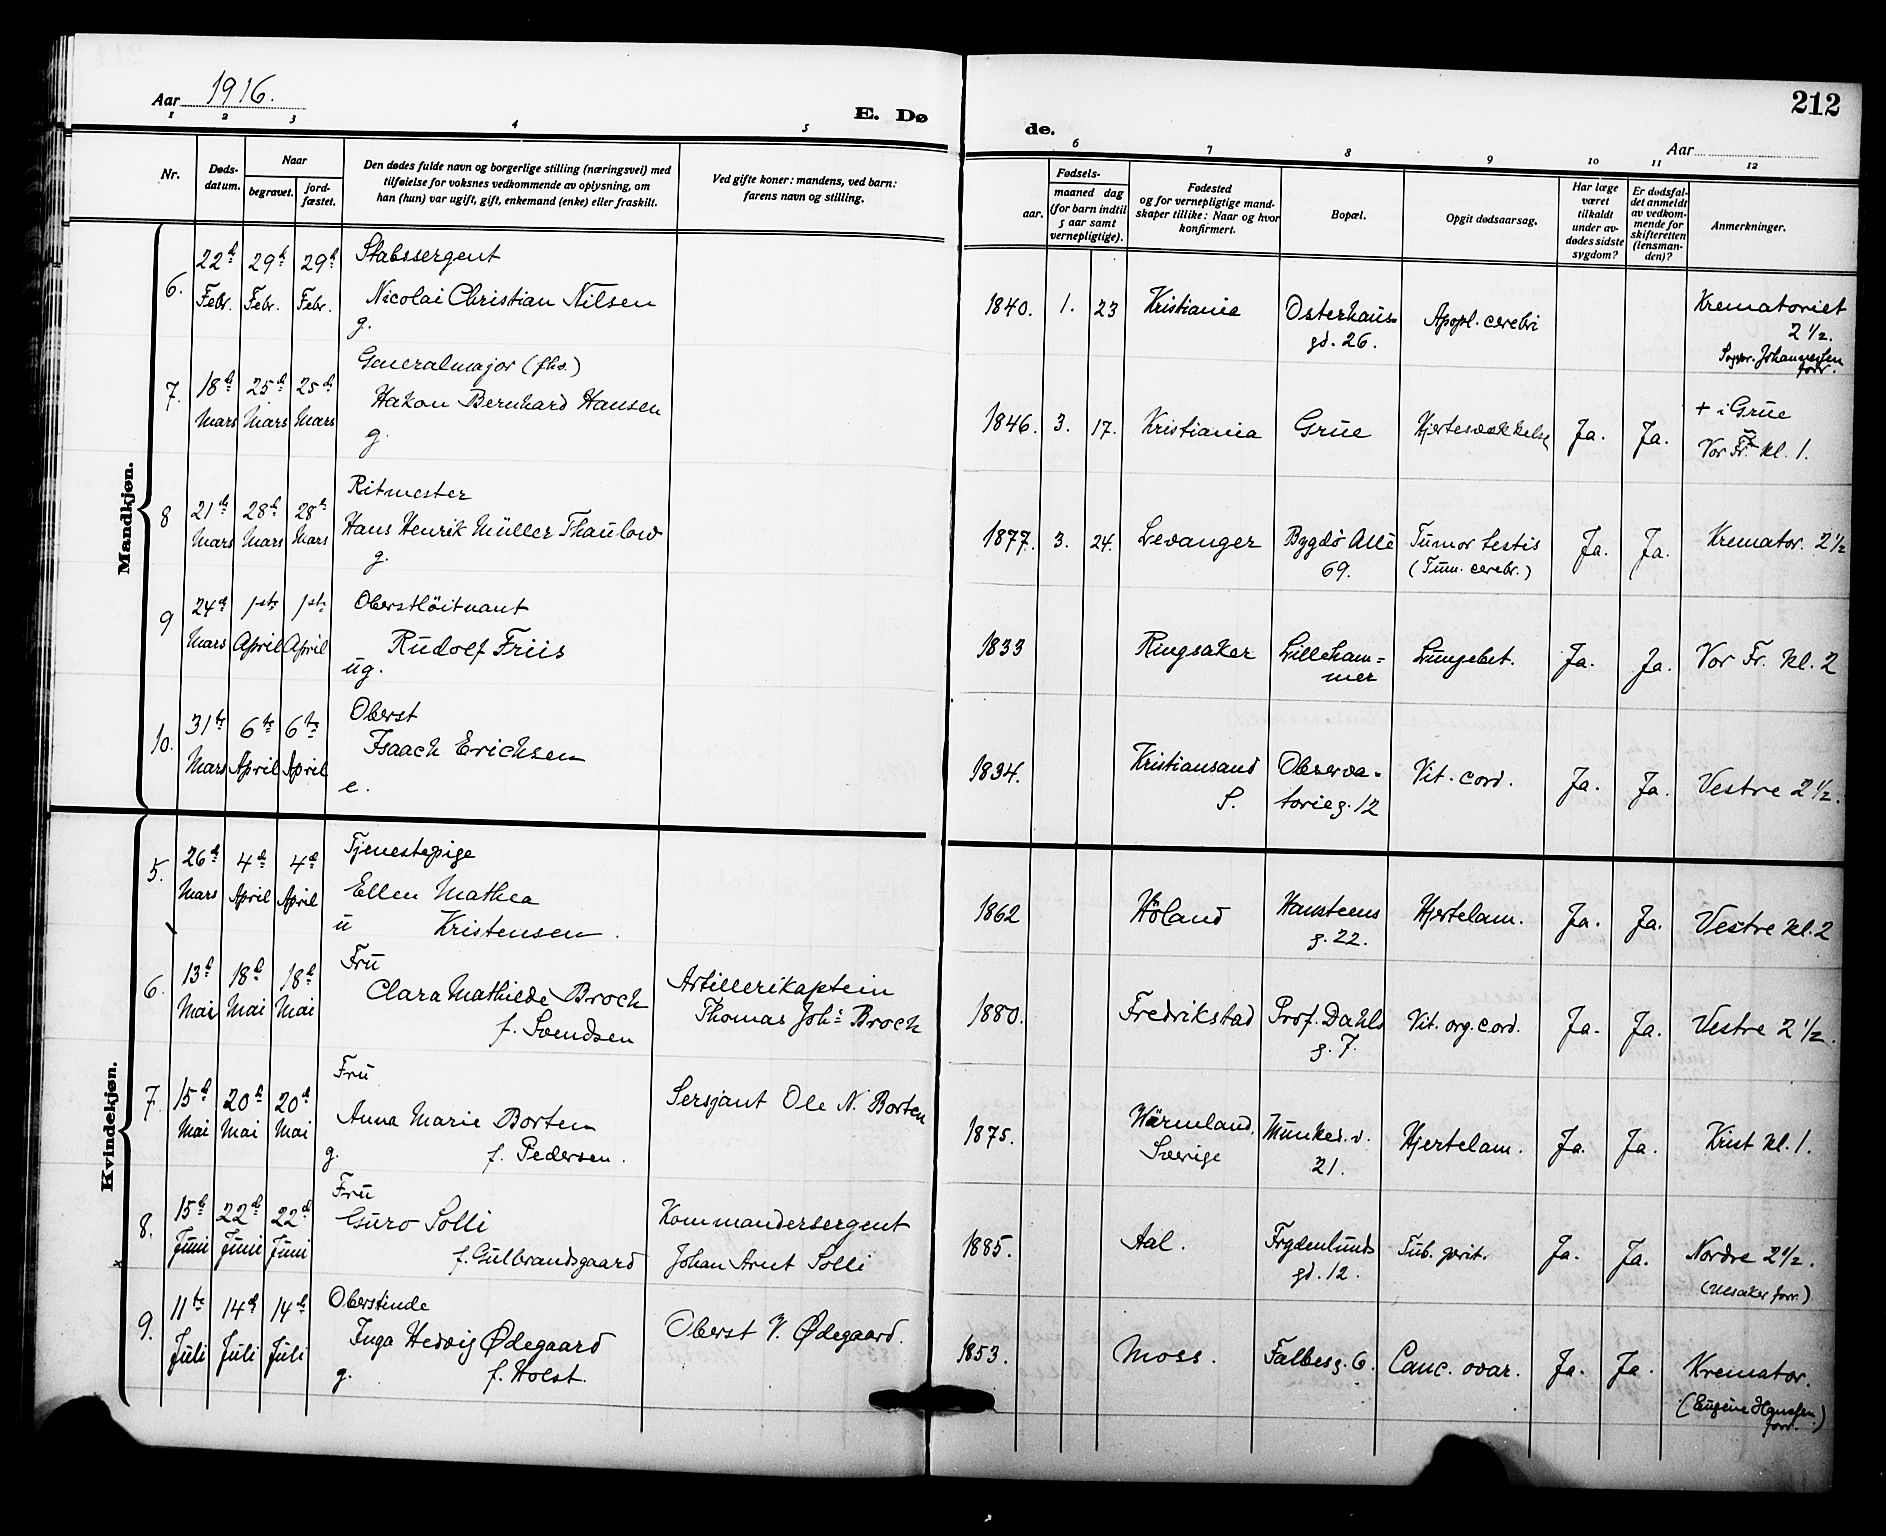 Aar 1916.
E. Dø
de.
212
Aar
1 2 3 4 5 6 7 8 9 10 11 12
Nr.
Døds-
datum.
Naar
begravet.
jord-
fæstet.
Den dødes fulde navn og borgerlige stilling (næringsvei) med
tilføielse for voksnes vedkommende av oplysning, om
han (hun) var ugift, gift, enkemand (enke) eller fraskilt.
Ved gifte koner: mandens, ved barn:
farens navn og stilling.
Fødsels-
aar.
maaned dag
(for barn indtil
5 aar samt
vernepligtige).
Fødested
og for vernepligtige mand-
skaper tillike: Naar og hvor
konfirmert.
Bopæl.
Opgit dødsaarsag.
Har læge
været
tilkaldt
under av-
dødes sidste
sygdom?
Er dødsfal-
det anmeldt
av vedkom-
mende for
skifteretten
(lensman-
den)?
Anmerkninger.
Mandkjøn.
6. 22d Febr. 29d Febr. 29d Febr.
Stabssergent
Nicolai Christian Nilsen
g.
1840. 1. 23 Kristiania
Osterhaus-
gd. 26.
Apopl. cerebri
Krematoriet
2 1/2.
Sogpr. Johannessen
forr.
7. 18de Mars 25de Mars 25de Mars
Generalmajor (fhs.)
Hakon Bernhard Hansen
g.
1846. 3. 17. Kristiania Grue Hjertesvækkelse Ja. Ja.
+ i Grue
Vor Fr. kl. 1.
8 21de Mars 28d Mars 28de Mars
Ritmester
Hans Henrik Müller Thaulow
g.
1877. 3. 24. Levanger
Bygdø Allé
69.
Tumor testis
(Tum. cerebr.)
Ja. Ja. Kremator. 2 1/2
9 24de Mars 1ste April 1ste April
Oberstløitnant
Rudolf Friis
ug.
1833 Ringsaker
Lilleham=
mer
Lungebet. Ja. Ja. Vor Fr. kl. 2
10. 31te Mars 6te April 6te April
Oberst
Isaach Erichsen
e.
1834.
Kristiansand
S.
Observa-
torieg. 12
Vit. cord. Ja. Ja. Vestre 2 1/2.
Kvindekjøn.
5. 26d Mars 4de April 4de April
Tjenestepige
Ellen Mathea
u Kristensen.
1862 Höland
Hansteens
g. 22.
Hjertelam. Ja. Ja. Vestre kl. 2
6. 13d Mai 18d Mai 18d Mai
Fru
Clara Mathilde Broch
f. Svendsen
Artillerikaptein
Thomas Johs Broch
1880. Fredrikstad
Prof. Dahls
g. 7.
Vit. org. cord. Ja. Ja. Vestre 2 1/2.
7. 15d Mai 20d Mai 20d Mai
Fru
Anna Marie Borten
g. f. Pedersen.
Sersjant Ole N. Borten
1875.
Wärmland.
Sverige
Munked. v.
21.
Hjertelam. Ja. Ja. Krist kl. 1.
8. 15d Juni 22d Juni 22d Juni
Fru
Guro Solli
f. Gulbrandsgaard
Kommandersergent
Johan Arnt Solli
1885. Aal.
Frydenlunds
gd. 12.
Tub. perit. Ja. Ja. Nordre 2 1/2.
forr.)
9. 11te Juli 14d Juli 14de Juli
Oberstinde
Inga Hedvig Ødegaard
g. f. Holst.
Oberst V. Ødegaard.
1853. Moss. Falbesg. 6. Canc. ovar. Ja. Ja. Kremator.
(Eugene Hanssen
forr.)